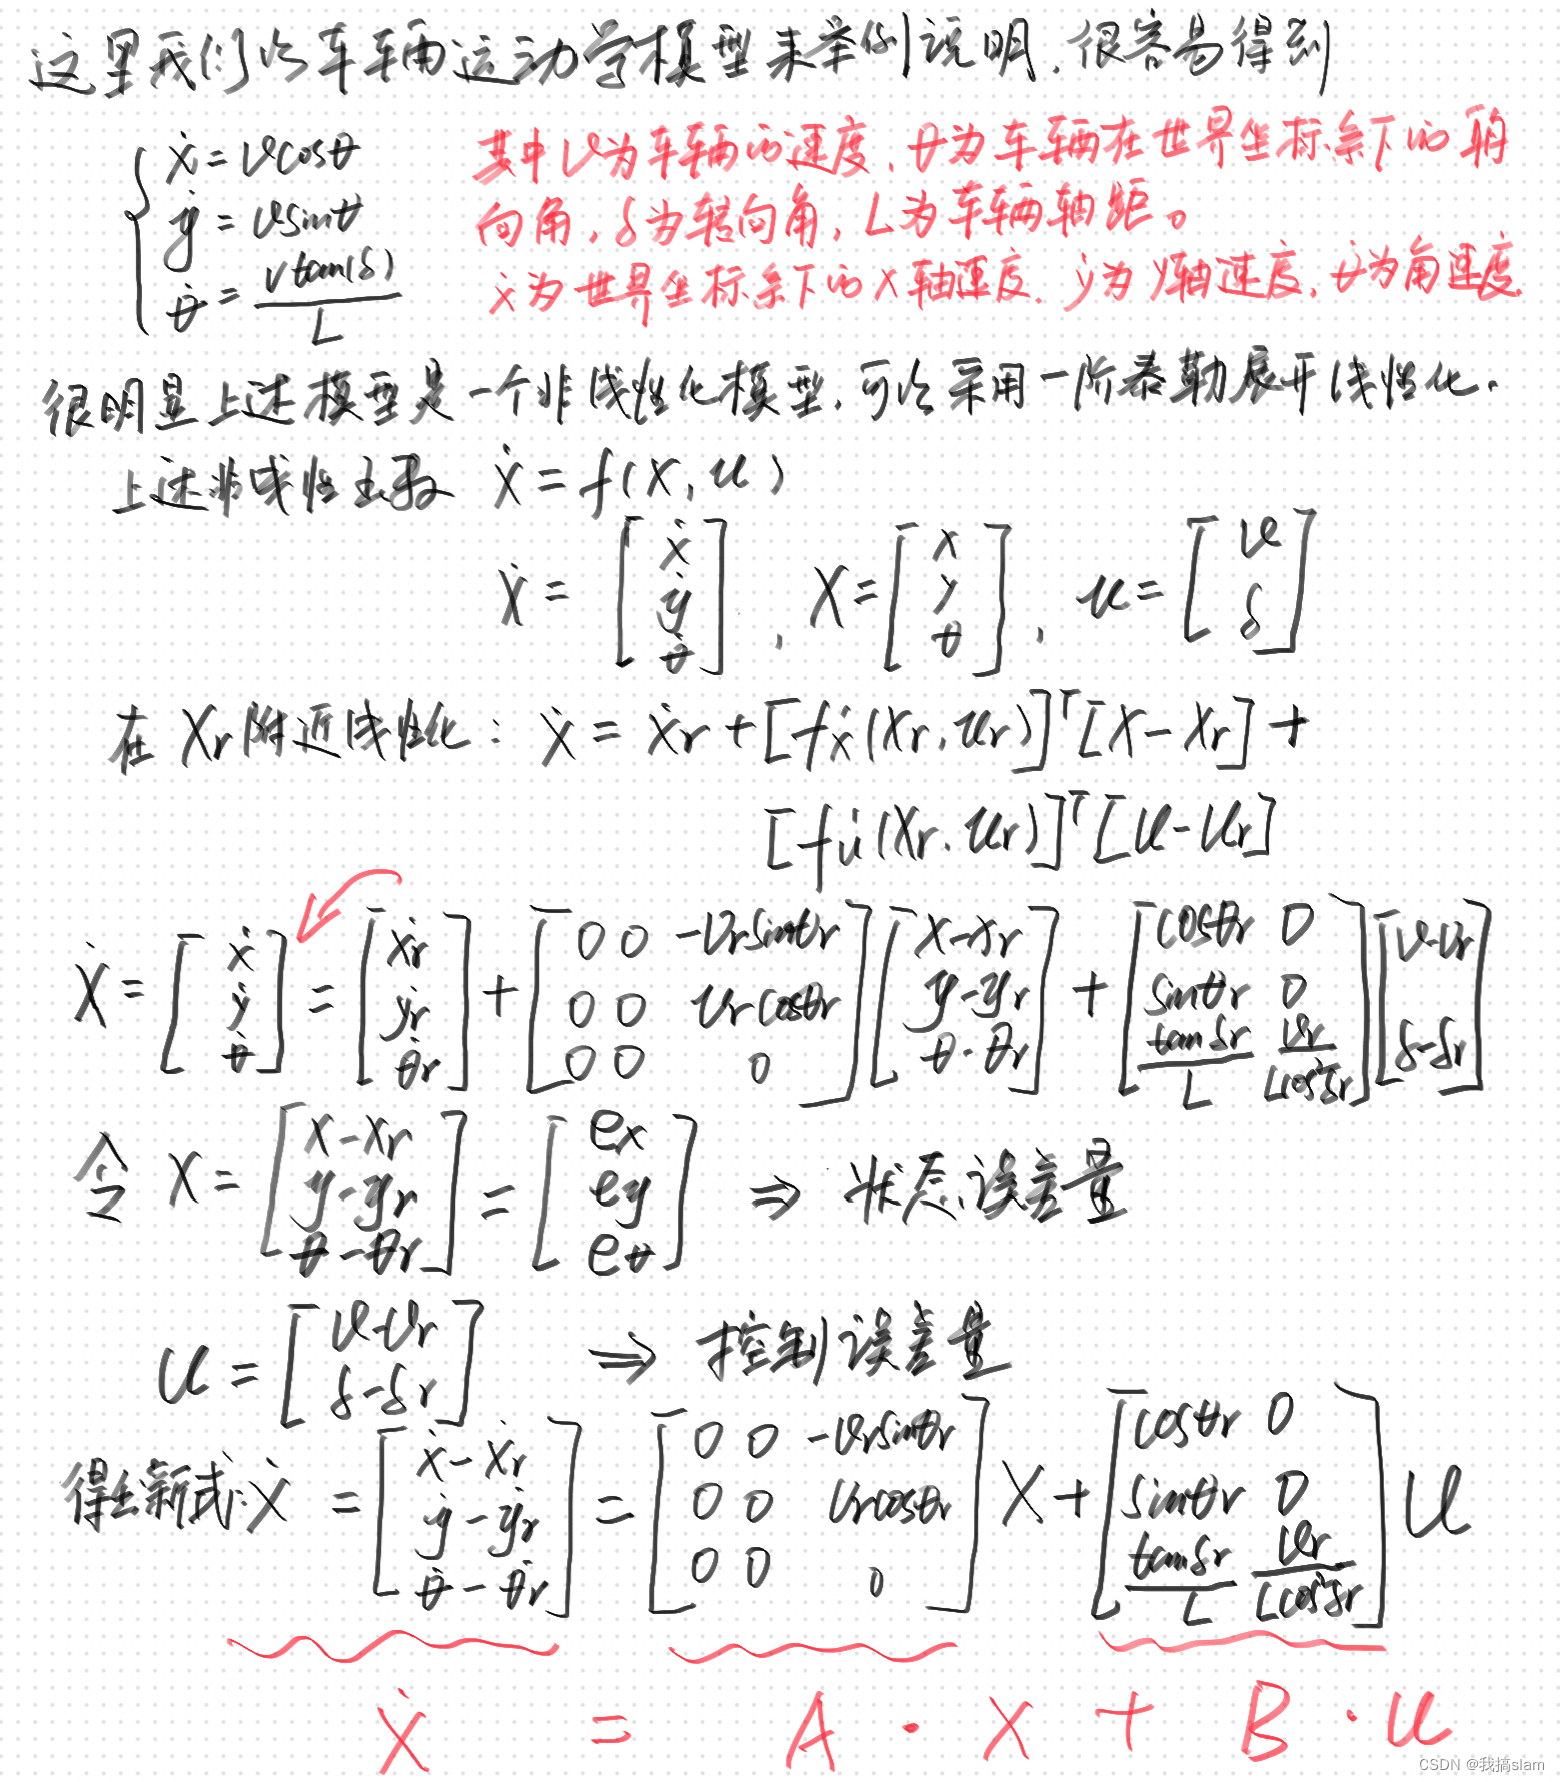 这里我们以车辆运动学模型来举例说明,很容易得到
{ ẋ = vcosθ
ẏ = vsinθ
θ̇ = vtan(δ) / L
其中v为车辆的速度,θ为车辆在世界坐标系下的朝
向角,δ为转向角,L为车辆轴距。
ẋ为世界坐标系下的X轴速度,ẏ为y轴速度,θ̇为角速度.
很明显上述模型是一个非线性化模型,可以采用一阶泰勒展开线性化.
上述非线性函数 Ẋ = f(X, u)
Ẋ = [ẋ ẏ θ̇], X = [x y θ], u = [v δ]
在 Xr 附近线性化: Ẋ = Ẋr + [fẋ(Xr, ur)]ᵀ[X - Xr] +
[fu̇(Xr, ur)]ᵀ[u - ur]
Ẋ = [ẋ ẏ θ̇] = [ẋr ẏr θ̇r] + [0 0 -vrsinθr; 0 0 vrcosθr; 0 0 0] [x-xr y-yr θ-θr] + [cosθr 0; sinθr 0; tanδr/L vr/Lcos²δr] [v-vr δ-δr]
令 X = [x-xr y-yr θ-θr] = [ex ey eθ] ⇒ 状态误差量
u = [v-vr δ-δr] ⇒ 控制误差量
得出新式: Ẋ = [ẋ-ẋr ẏ-ẏr θ̇-θ̇r] = [0 0 -vrsinθr; 0 0 vrcosθr; 0 0 0] X + [cosθr 0; sinθr 0; tanδr/L vr/Lcos²δr] u
Ẋ = A · X + B · u
CSDN @我搞slam